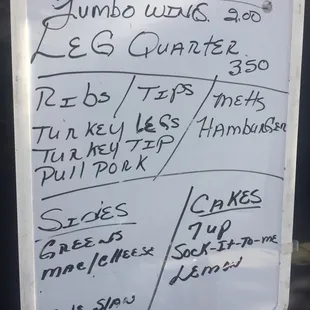 Jumbo Wings 2.00
Leg Quarter
350
Ribs / Tips / Metts
Turkey Legs Hamburger
Turkey Tip
Pull Pork
Sides
Greens
Mac/Cheese
Slaw
Cakes
7up
Sock-It-To-me
Lemon